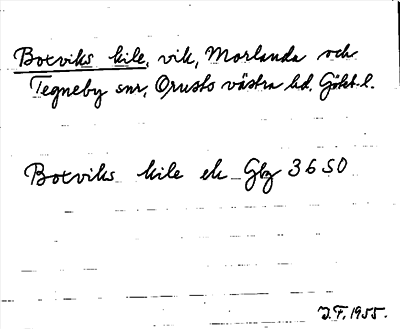 Botviks kile, vik, Morlanda och
Tegneby snr, Orusts västra hd. Göteb. l.
Botviks kile ek Gbg 36 SO
J.F. 1955.